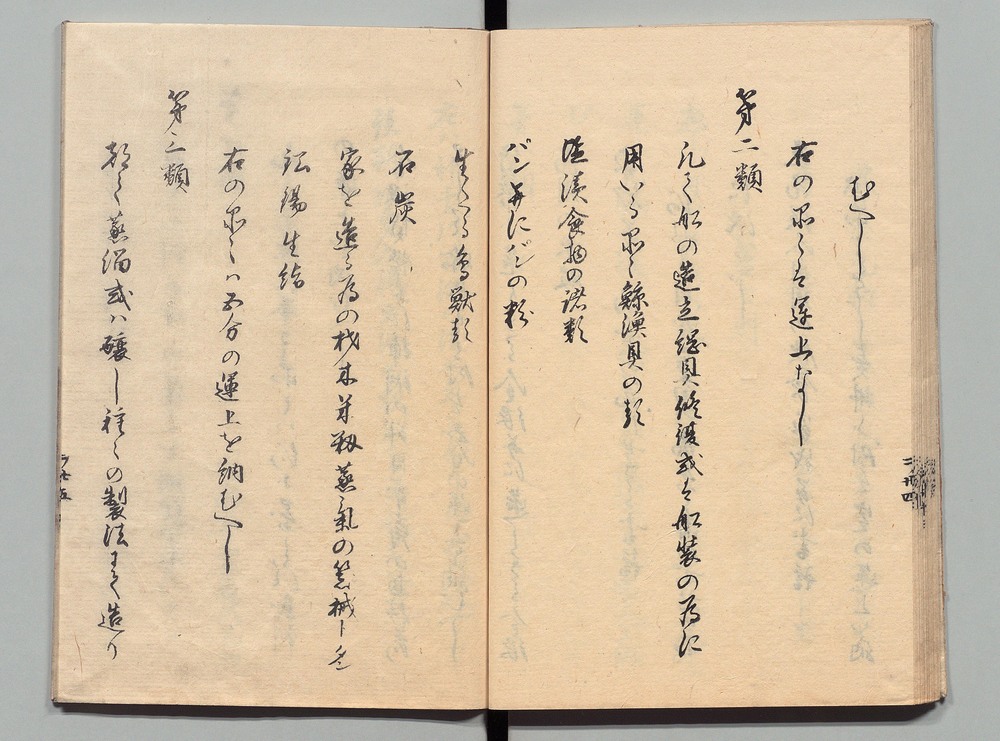 むへし
右の品々は運上なし
第二類
凡て船の造立綱具修復或は船装の為に
用いる品々鯨漁具の類
塩漬食物の諸類
パン并にパンの粉
生たる鳥獣類
石炭
家を造る為の材木米籾蒸氣の器械トタン
鉛錫生絹
右の品々ハ五分の運上を納むへし
第三類
都て蒸溜或ハ醸し種々の製法にて造り
二ノ廿四
二ノ廿五